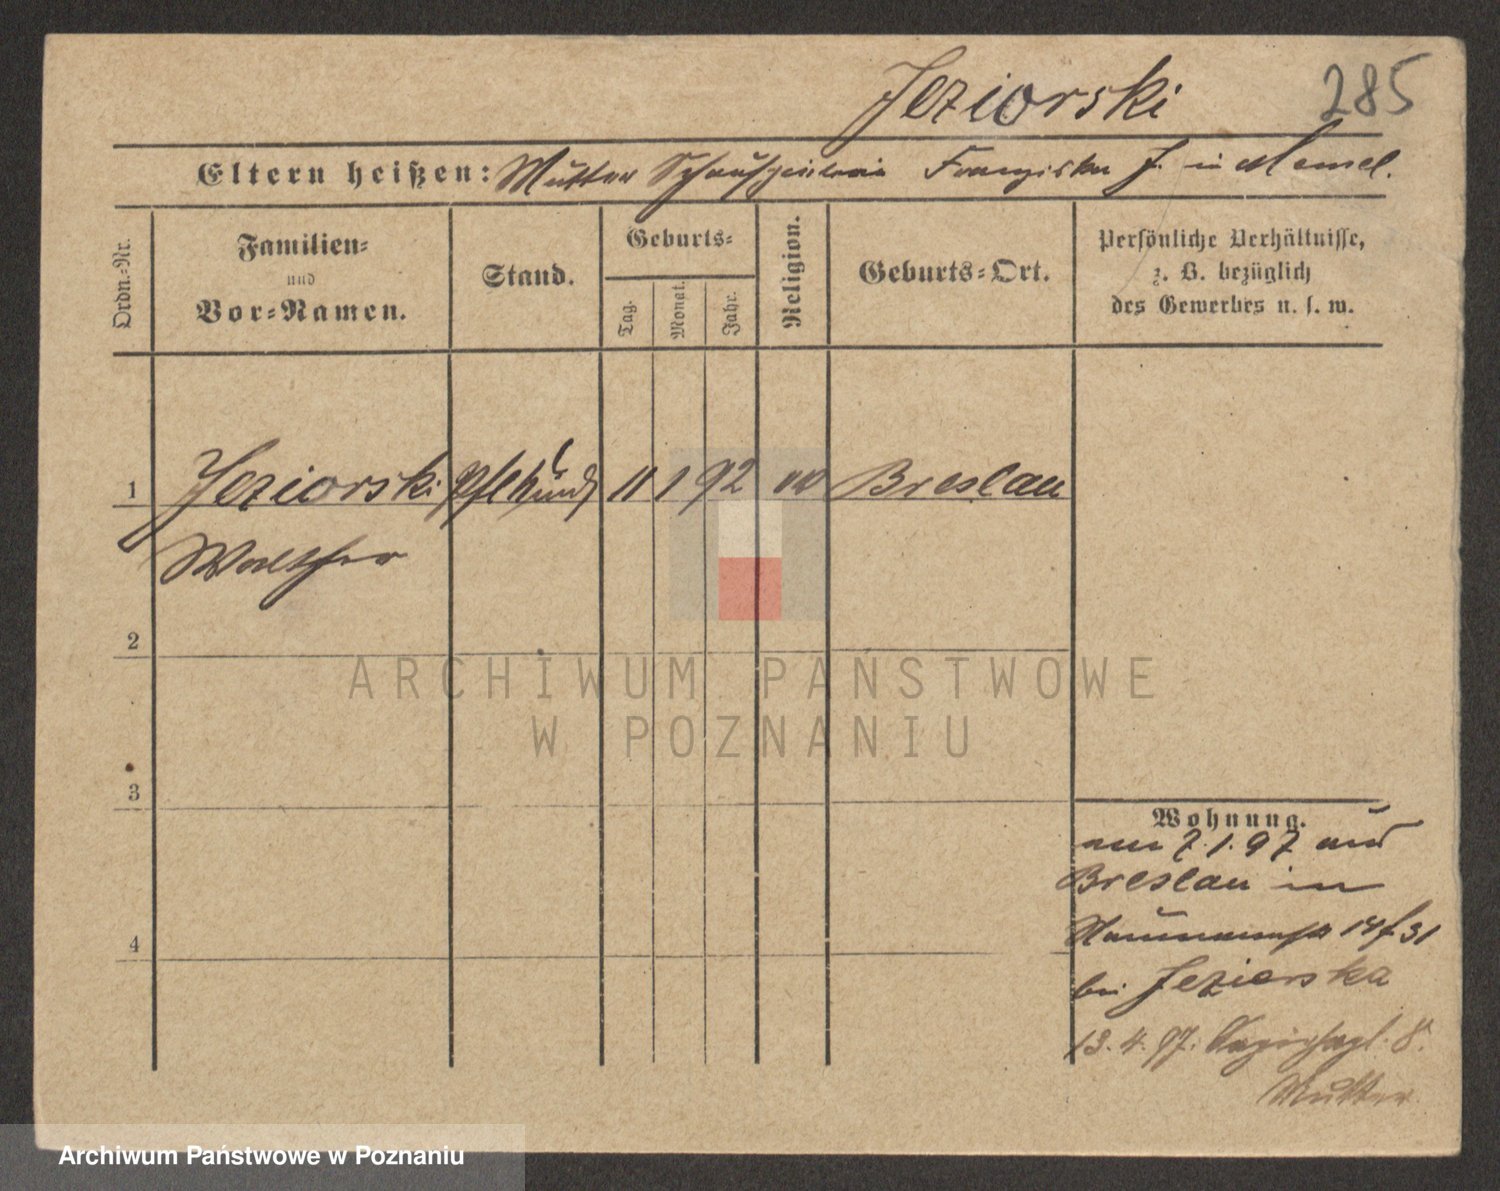 Jeziorski
285
Eltern heißen: Mutter Schauspielerin Franziska J. in Memel.
Ordn.-Nr.
Familien-
und
Vor-Namen.
Stand.
Geburts-
Tag.
Monat.
Jahr.
Religion.
Geburts-Ort.
Persönliche Verhältnisse,
z. B. bezüglich
des Gewerbes u. s. w.
1 Jeziorski Pflekind 11 1 92 Breslau
Walther
2
3
4
Wohnung.
am 7.1.97 aus
Breslau in
Naumannstr 14 31
bei Jeziorska
13.4.97. 8.
Mutter
ARCHIWUM PAŃSTWOWE
W POZNANIU
Archiwum Państwowe w Poznaniu